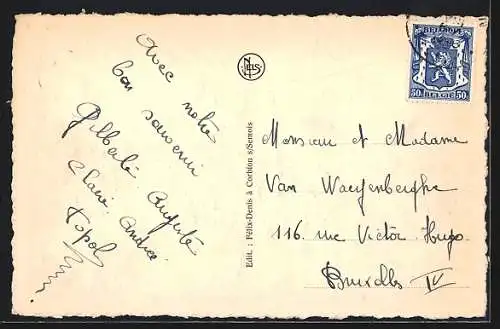 Avec notre
bon souvenir
Gilberte Auguste
Claire. Andrée
Topol
NELS
Edit. : Félix-Denis à Corbion s/Semois
BELGIQUE
50 BELGIE 50
Monsieur et Madame
Van Waeyenberghe
116. rue Victor Hugo
Bruxelles IV